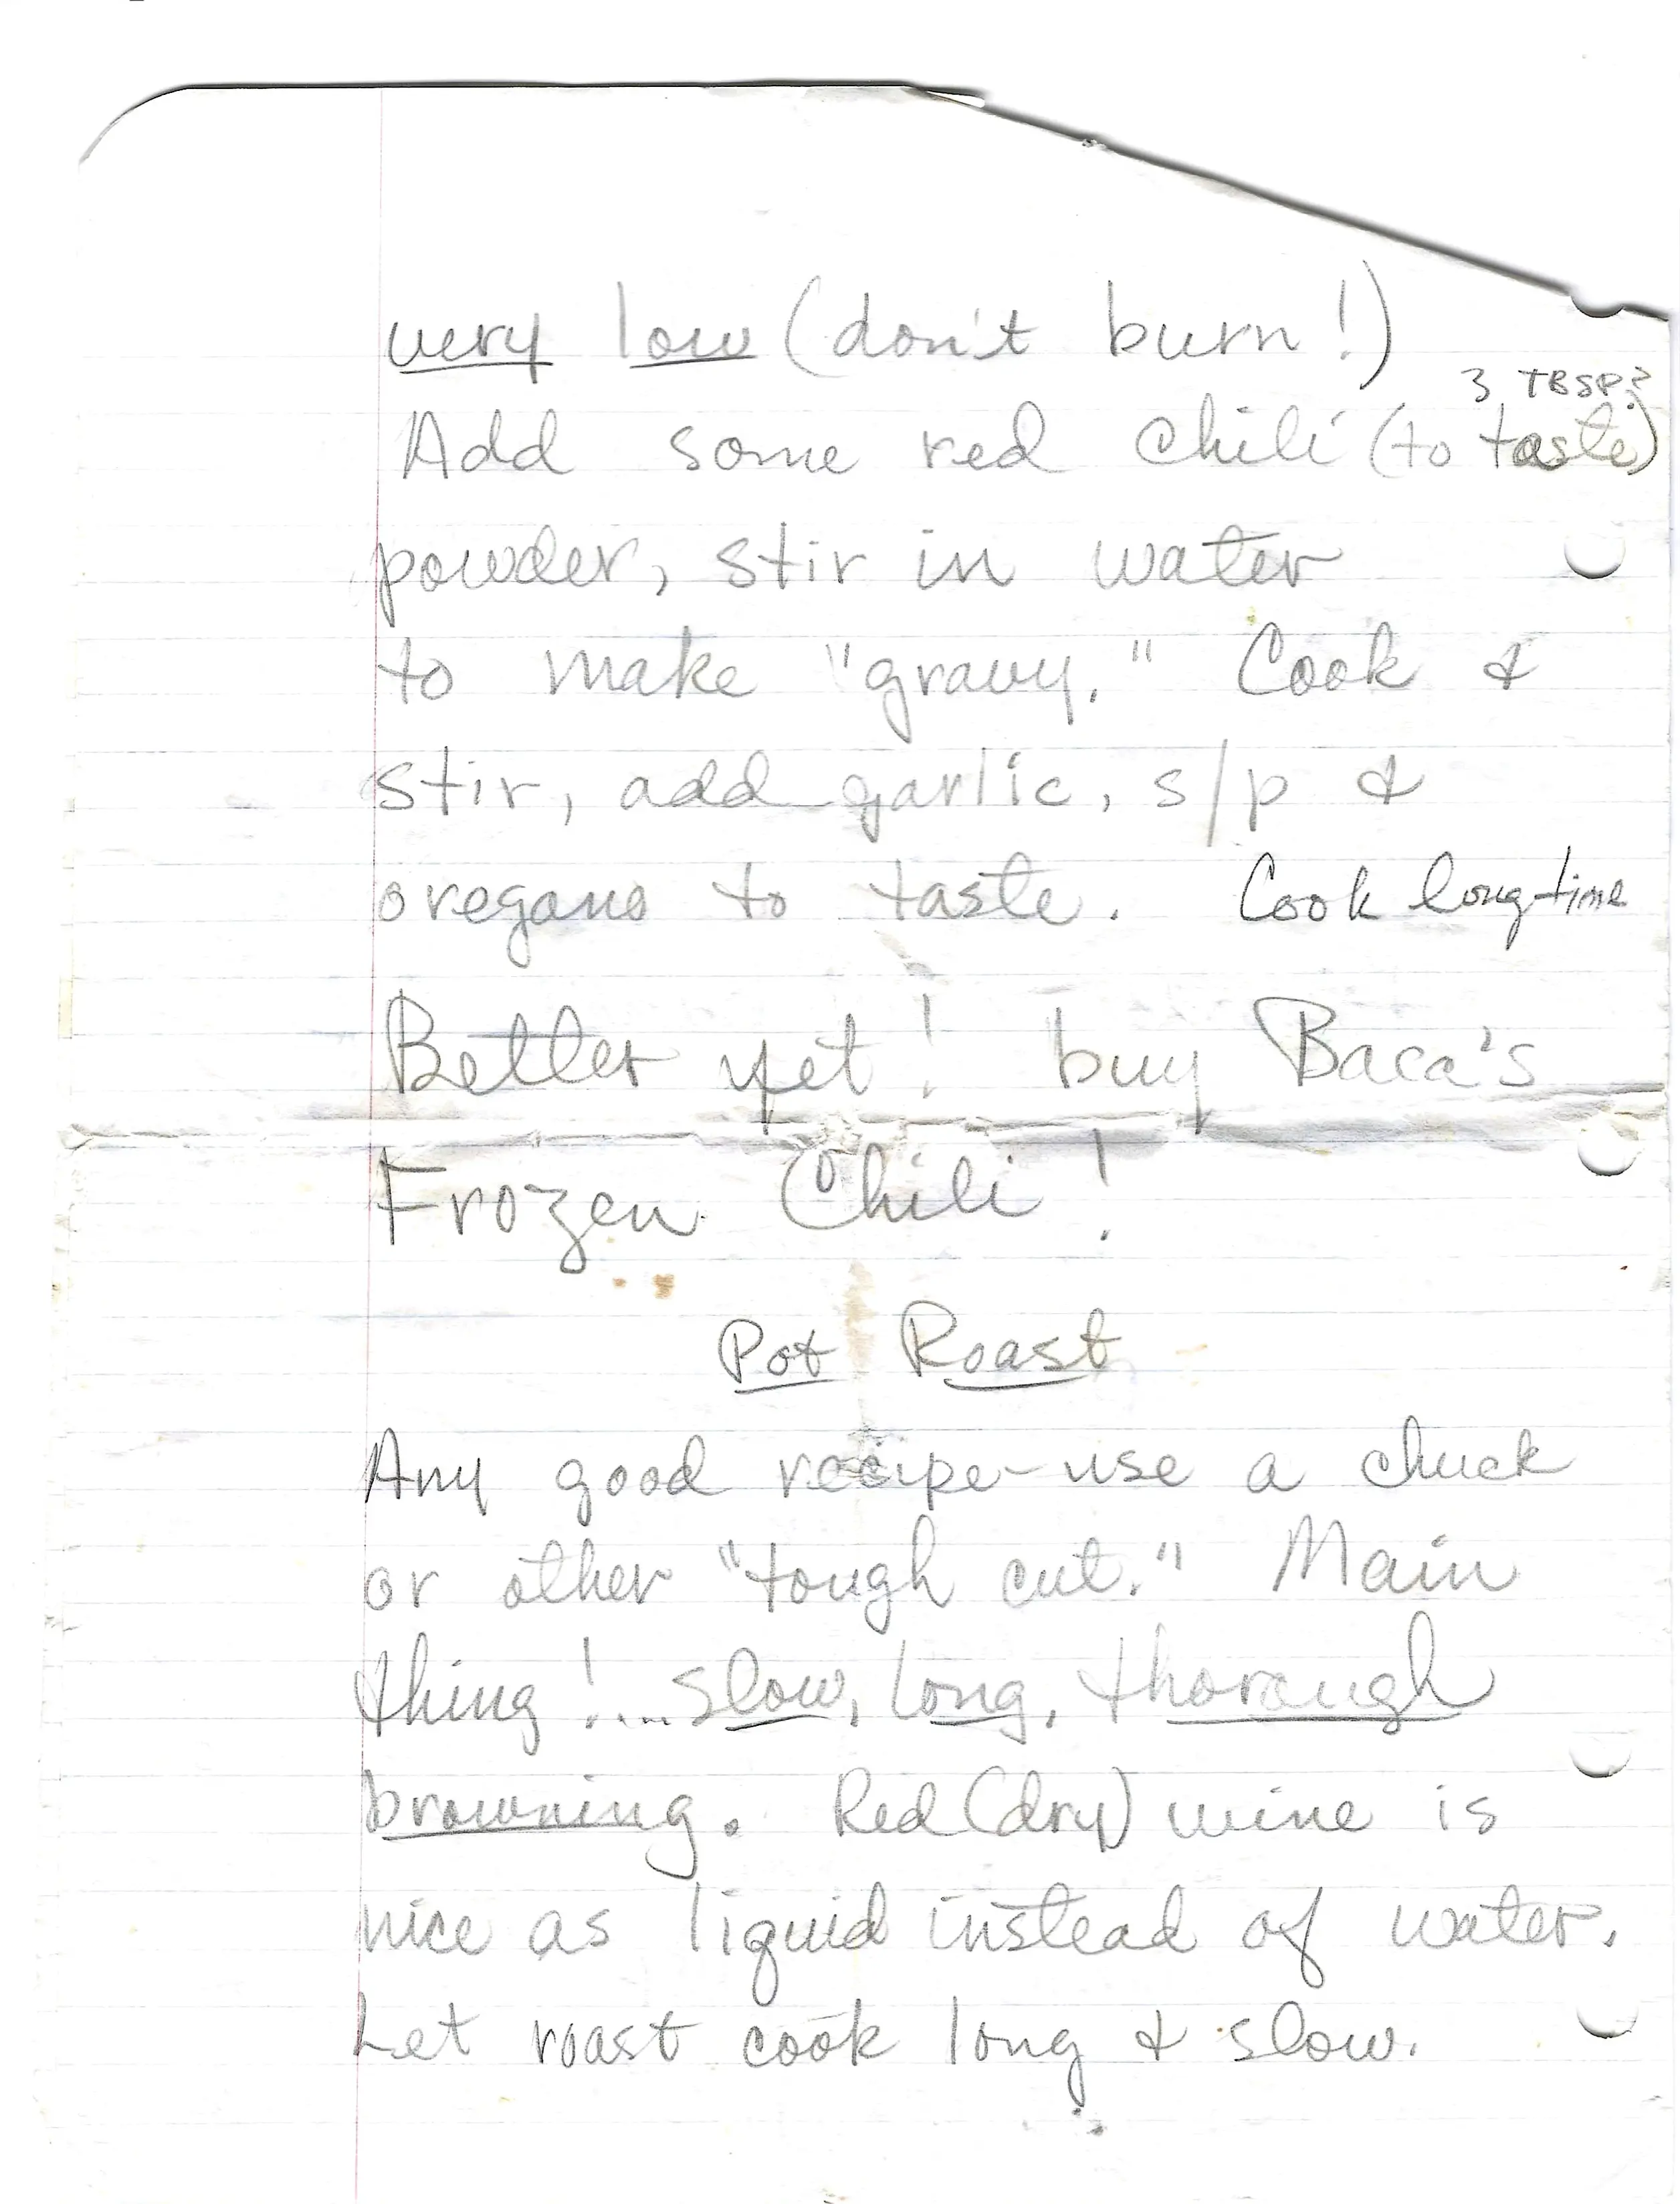 very low (don't burn!)
3 TBSP?
Add some red chili (to taste)
powder, stir in water
to make "gravy." Cook &
stir, add garlic, s/p &
oregano to taste. Cook long time
Better yet! buy Baca's
Frozen Chili!
Pot Roast
Any good recipe - use a chuck
or other "tough cut." Main
thing!... slow, long, thorough
browning. Red (dry) wine is
nice as liquid instead of water.
Let roast cook long & slow.